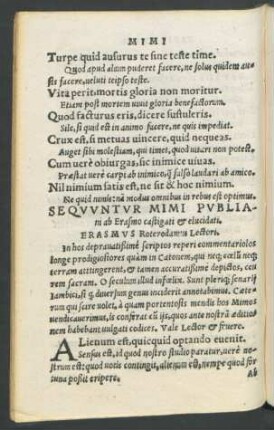 MIMI
Turpe quid ausurus te sine teste time.
Quod apud alium puderet facere, ne solus quidem au-
sis facere, veluti teipso teste.
Vita perit, mortis gloria non moritur.
Etiam post mortem vivit gloria benefactorum.
Quod facturus eris, dicere sustuleris.
Sile, si quid est in animo facere, ne quis impediat.
Crux est, si metuas vincere, quid nequeas.
Auget sibi molestiam, qui timet, quod vitari non potest.
Cum uerè obiurgas, sic inimice iuuas.
Præstat uerè carpi ab inimico, q̃ falso laudari ab amico.
Nil nimium satis est, ne sit & hoc nimium.
Ne quid nimis: nã modus omnibus in rebus est optimus.
SEQVVNTVR MIMI PVBLIA-
ni ab Erasmo castigati & elucidati.
ERASMVS Roterodamus Lectori.
In hos depravatissimè scriptos reperi commentariolos
longe prodigiosiores quàm in Catonem, qui neq; cœlũ neq;
terram attingerent, & tamen accuratissimè depictos, ceu
rem sacram. O seculum illud infœlix. Sunt pleriq; senarij
Iambici, si q; diversum genus inciderit annotabimus. Cæte-
rum qui scire volet, à quàm portentosis mendis hos Mimos
vendicaverimus, is conferat cũ ijs, quos ante nostrã æditio
nem habebant vulgati codices. Vale Lector & fruere.
ALienum est, quicquid optando euenit.
Sensus est, id quod nostro studio paratur, uerè no-
strum est: quod uotis contingit, alienum est, nempe quod for
tuna possit eripere.
Ab